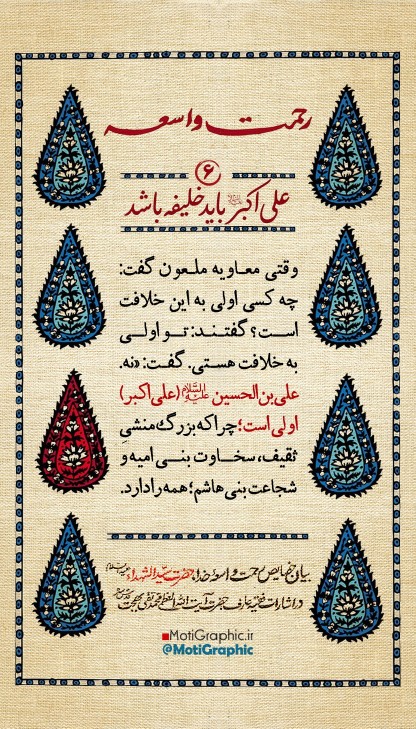 رحمت واسعه
۶
علی اکبر باید خلیفه باشد
وقتی معاویه ملعون گفت:
چه کسی اولی به این خلافت
است؟ گفتند: تو اولی
به خلافت هستی. گفت: «نه.
علی‌بن‌الحسین علیه‌السلام (علی‌اکبر)
اولی است؛ چرا که بزرگ‌منشی
ثقیف، سخاوت بنی امیه و
شجاعت بنی هاشم؛ همه را دارد.
بیان خصایص رحمت واسعه خدا، حضرت سیدالشهداء
در اشارات فقیه عارف حضرت آیت الله العظمی محمدتقی بهجت
MotiGraphic.ir
@MotiGraphic